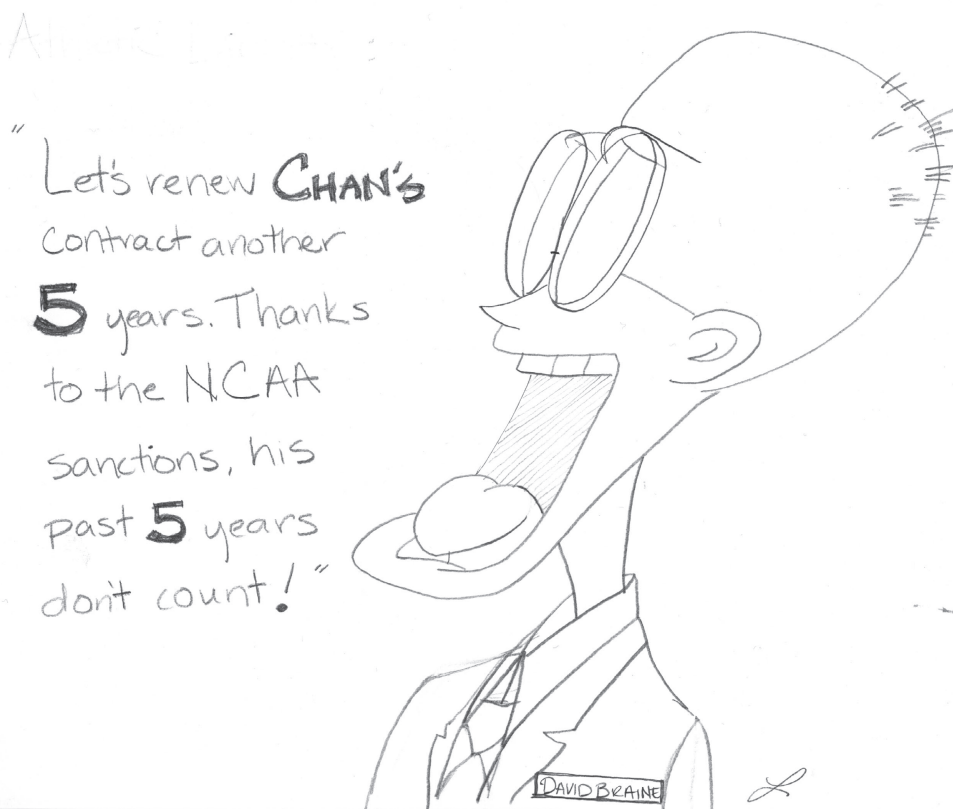 "Let's renew CHAN'S
contract another
5 years. Thanks
to the NCAA
sanctions, his
past 5 years
don't count!"
DAVID BRAINE